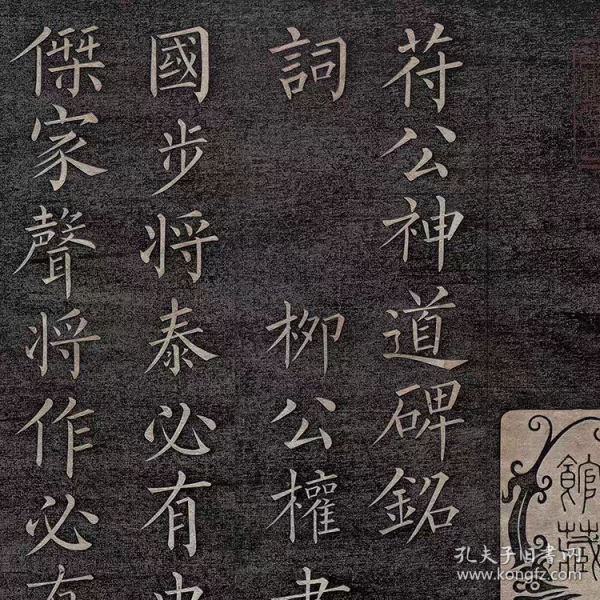 苻公神道碑銘
詞 柳公權書
國步将泰必有忠
傑家聲将作必有
館藏
孔夫子旧书网
www.kongfz.com